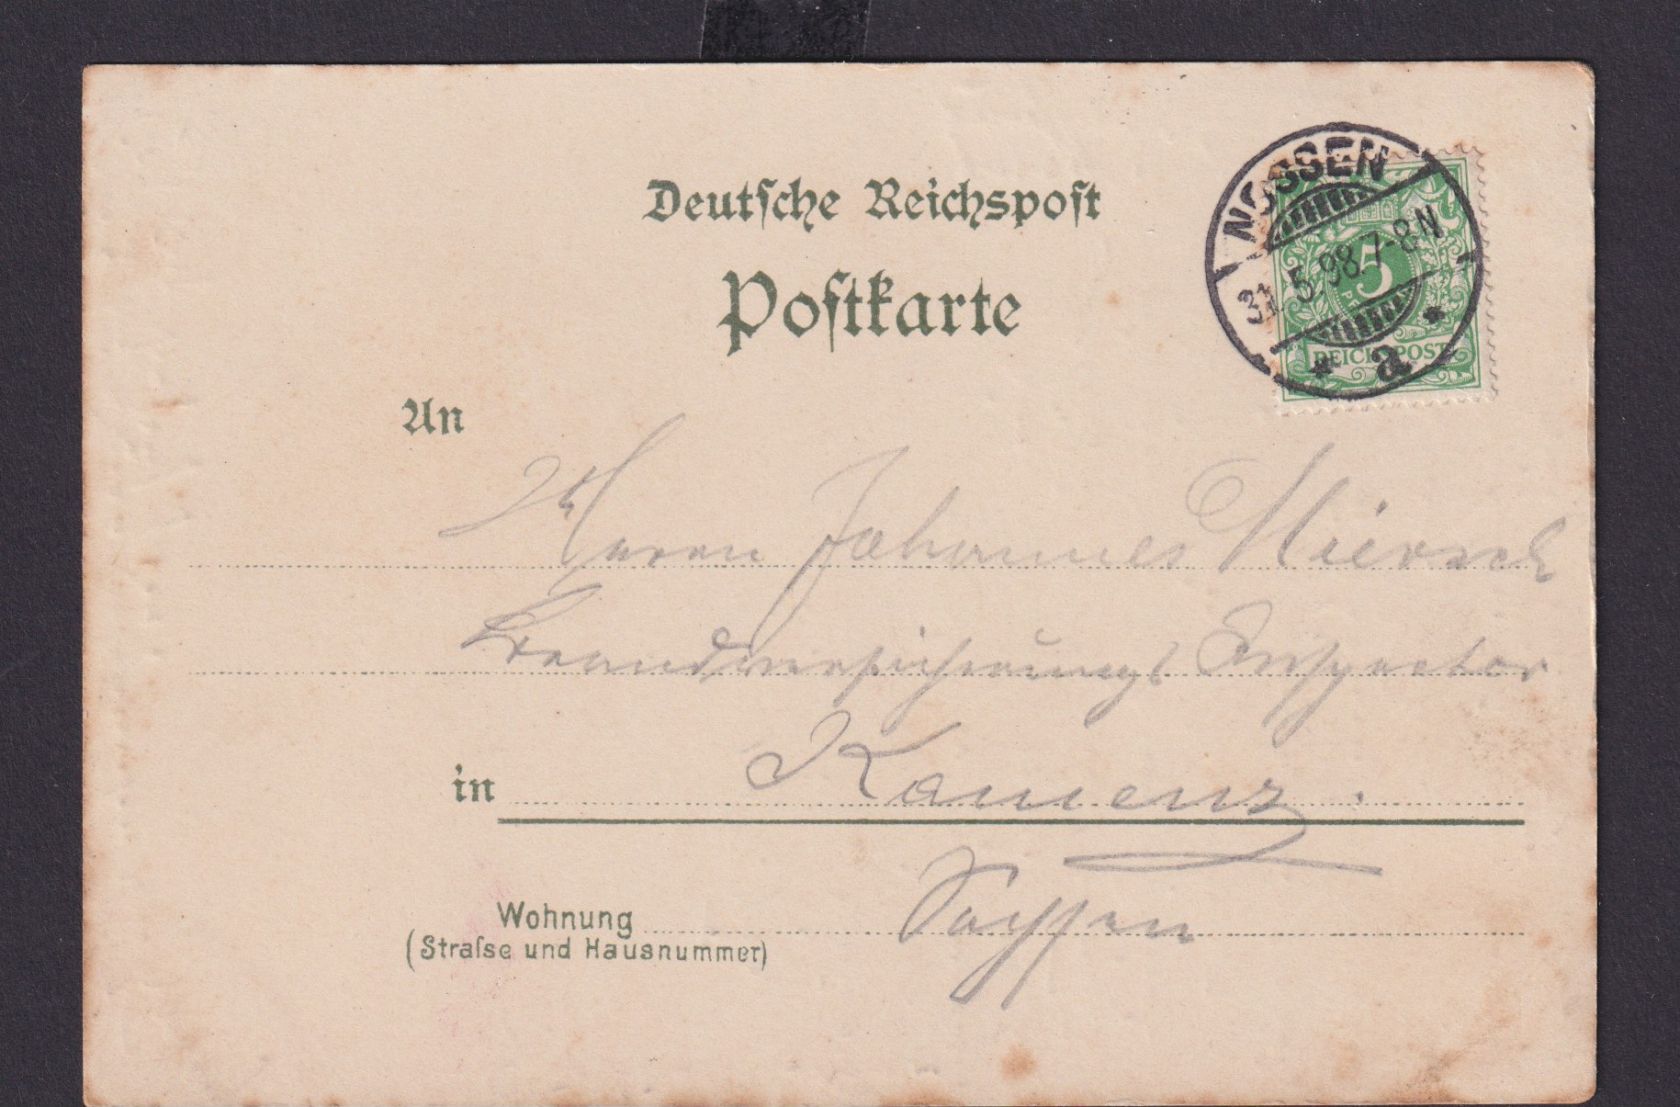 Deutſche Reichspoſt
Poſtkarte
NOSSEN
31. 5. 98. 7-8N
5
PF
REICHSPOST
a
An
Herrn Johannes
Brandversicherungs Inspector
in Kamenz.
Sachsen
Wohnung
(Straſse und Hausnummer)